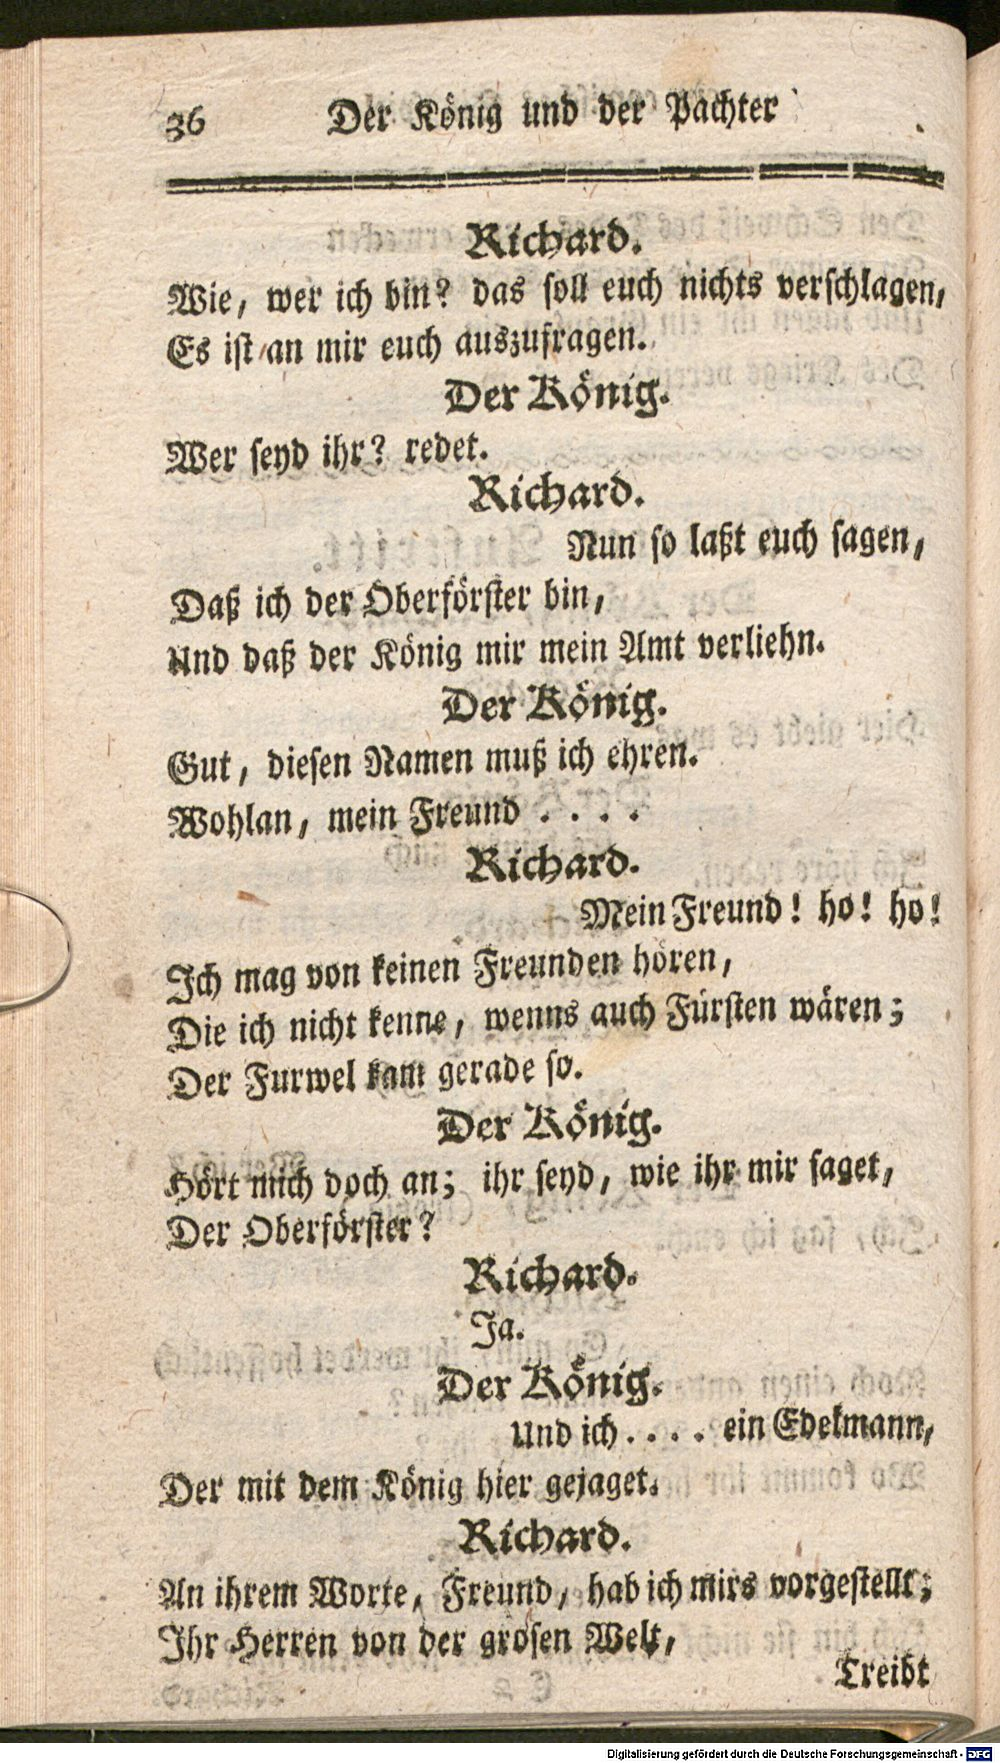 36 Der König und der Pachter
Richard.
Wie, wer ich bin? das soll euch nichts verschlagen,
Es ist an mir euch auszufragen.
Der König.
Wer seyd ihr? redet.
Richard.
Nun so laßt euch sagen,
Daß ich der Oberförster bin,
Und daß der König mir mein Amt verliehn.
Der König.
Gut, diesen Namen muß ich ehren.
Wohlan, mein Freund . . . .
Richard.
Mein Freund! ho! ho!
Ich mag von keinen Freunden hören,
Die ich nicht kenne, wenns auch Fürsten wären;
Der Furwel kam gerade so.
Der König.
Hört mich doch an; ihr seyd, wie ihr mir saget,
Der Oberförster?
Richard.
Ja.
Der König.
Und ich . . . . ein Edelmann,
Der mit dem König hier gejaget.
Richard.
An ihrem Worte, Freund, hab ich mirs vorgestellt;
Ihr Herren von der grosen Welt,
Treibt
Digitalisierung gefördert durch die Deutsche Forschungsgemeinschaft - DFG